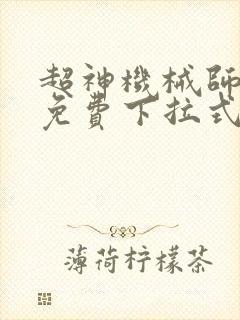 超神機械師
免費下拉式
薄荷柠檬茶